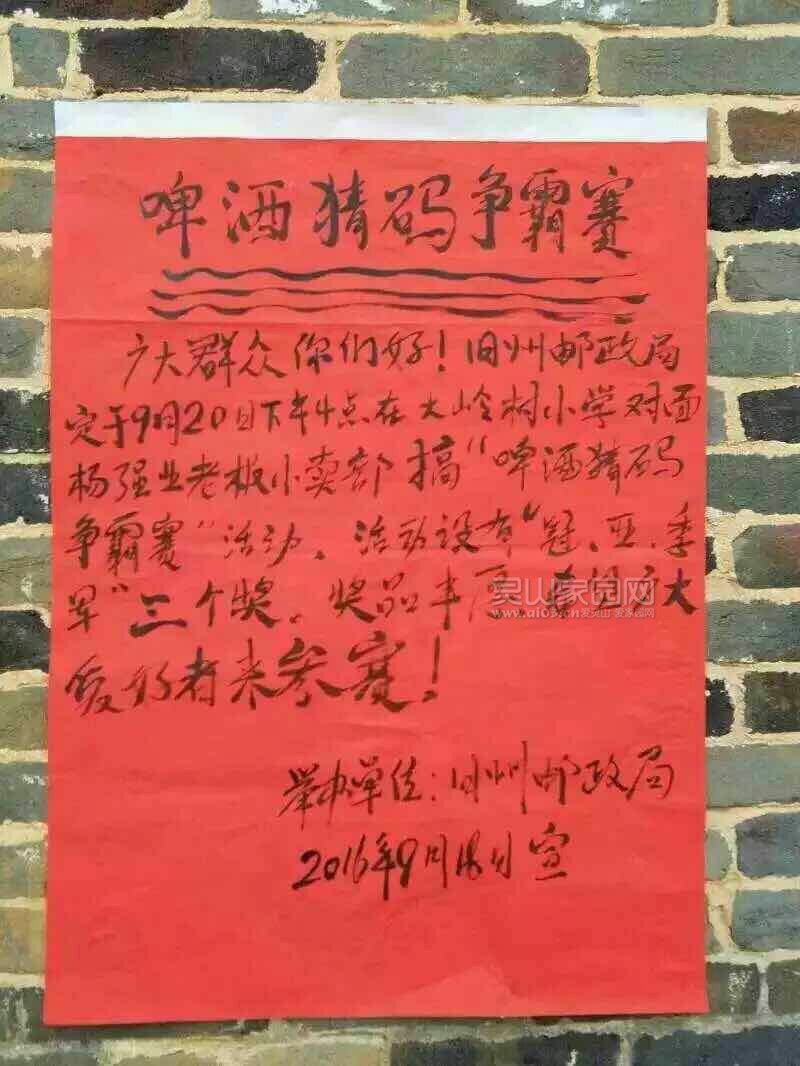 啤酒猜码争霸赛
广大群众你们好！旧州邮政局
定于9月20日下午4点在大岭村小学对面
杨强业老板小卖部搞“啤酒猜码
争霸赛”活动、活动设有“冠、亚、季
军”三个奖、奖品丰厚 大
爱好者来参赛！
举办单位：旧州邮政局
2016年9月18日宣
灵山家园网
www.aio3.cn 爱灵山 爱家园网